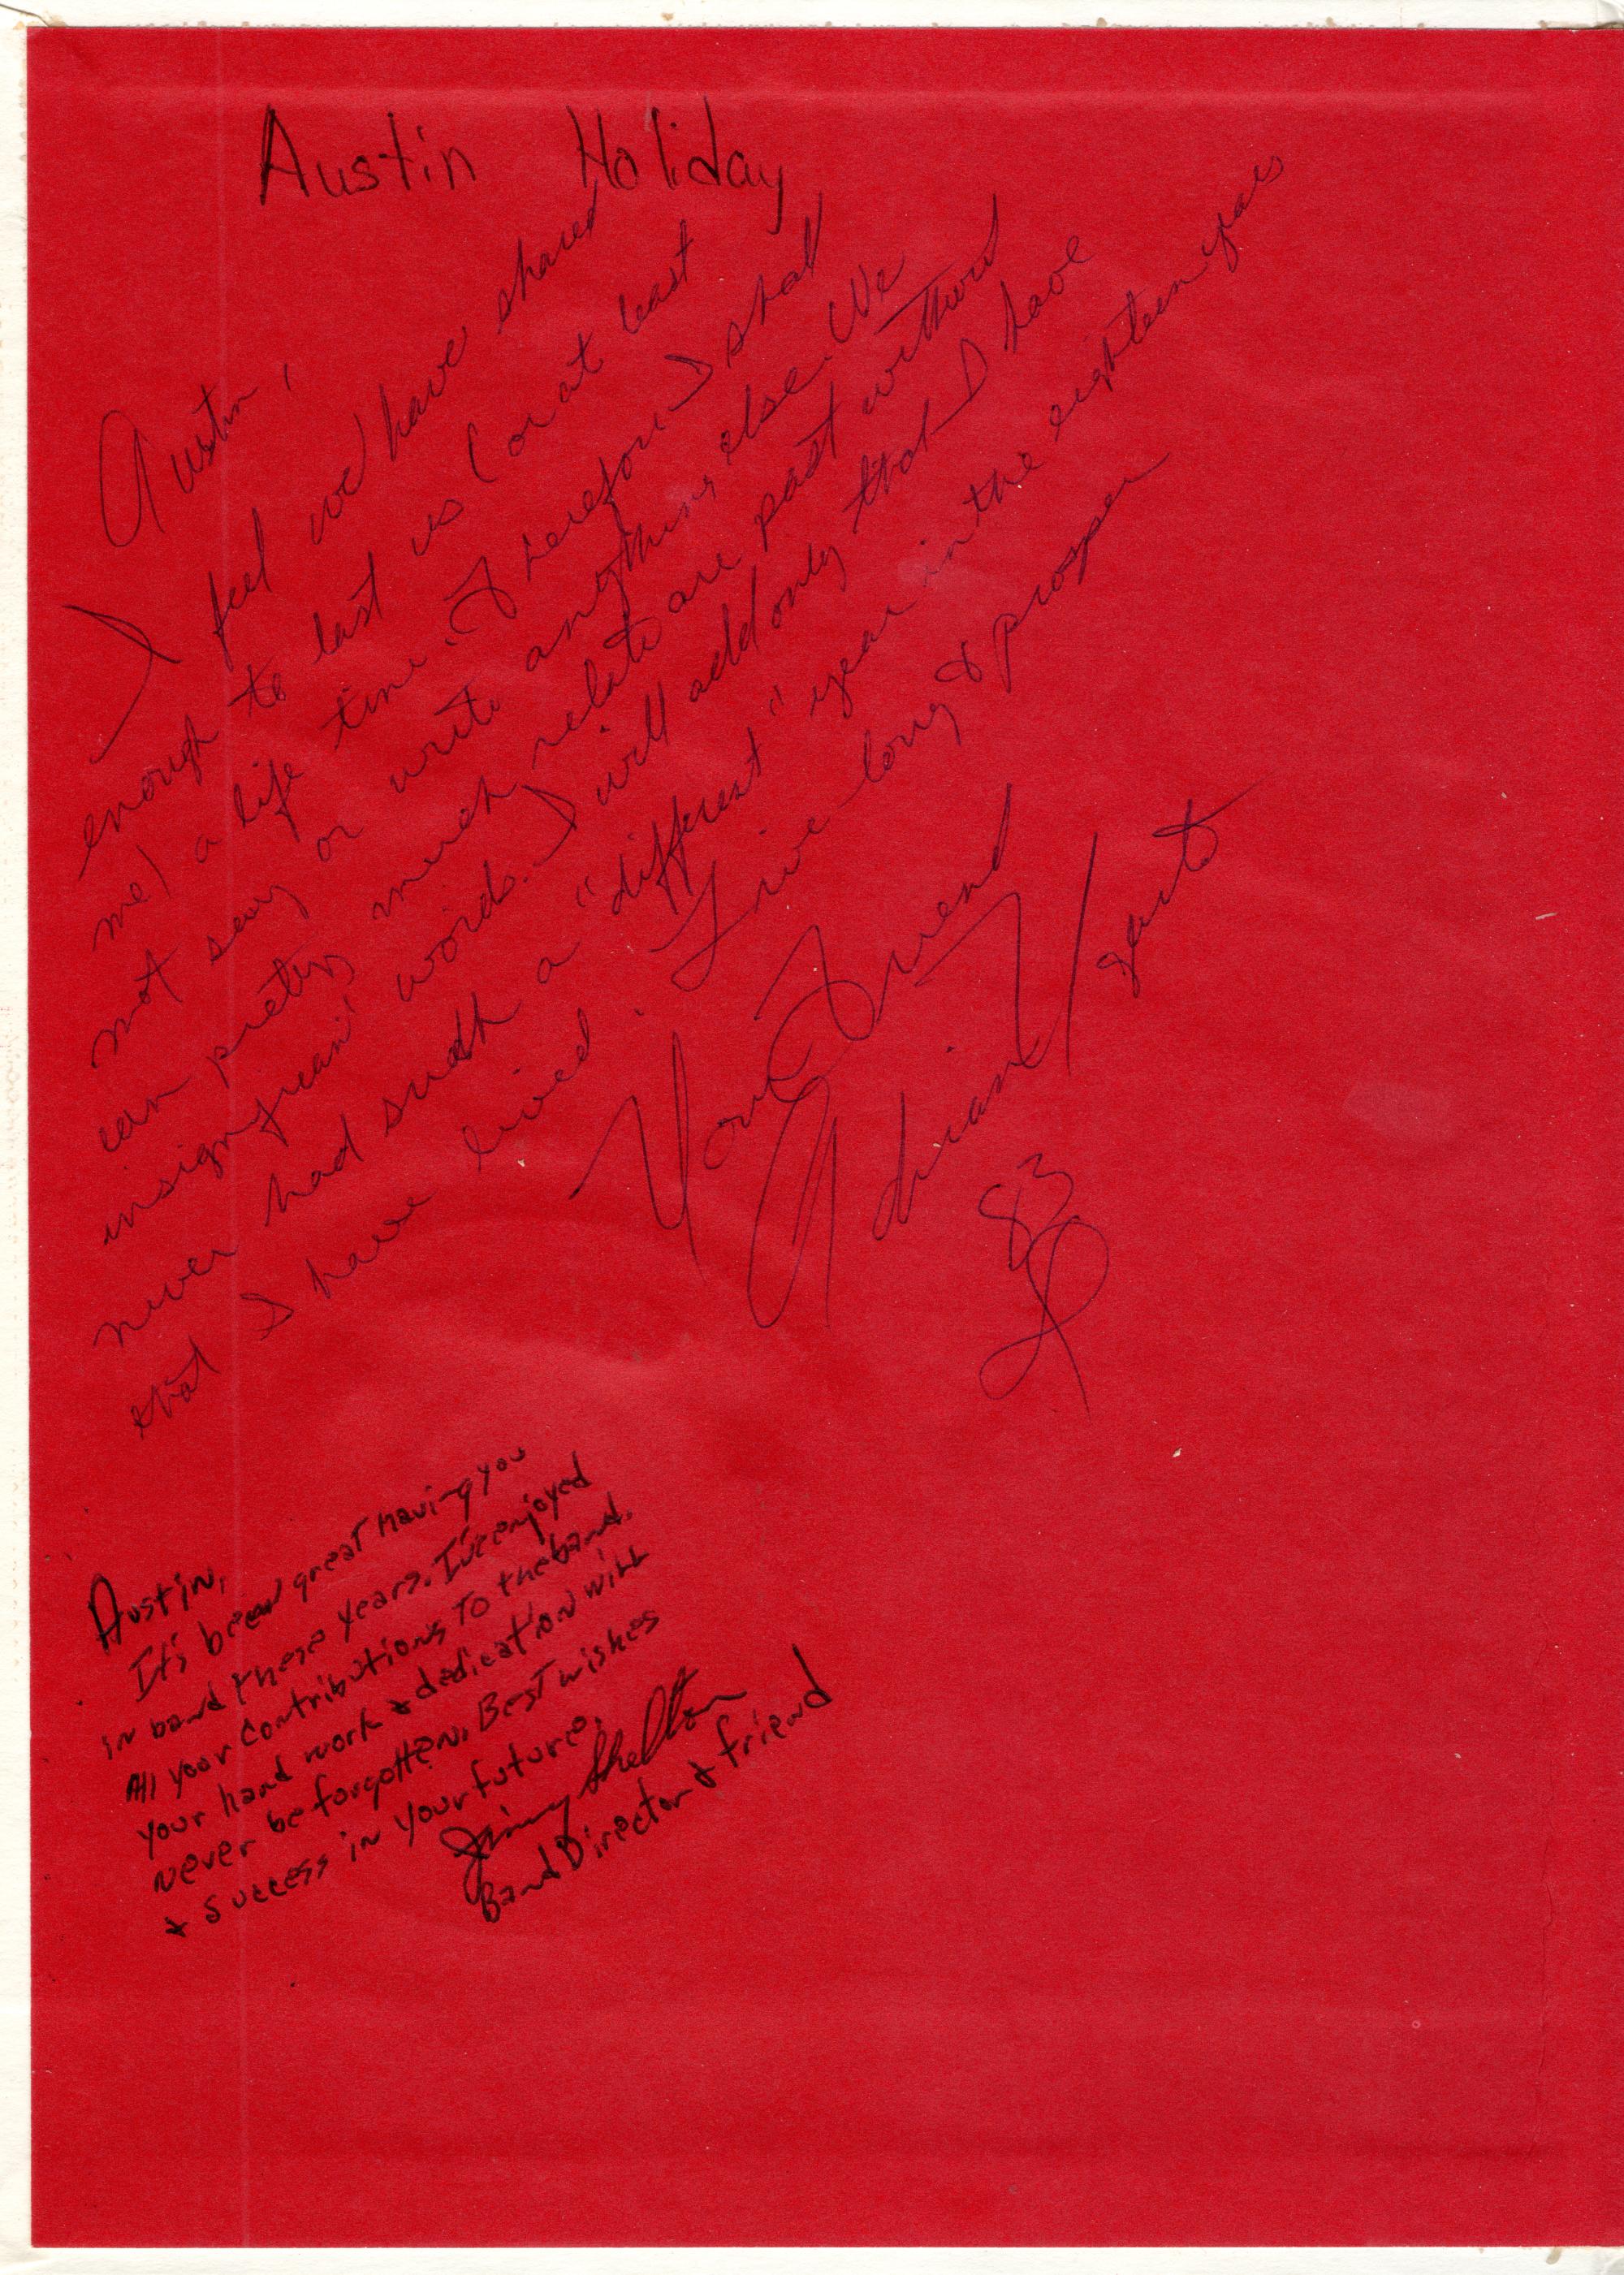 Austin Holiday
Austin,
I feel we have shared
enough to last us (or at least
me) a life time. I therefore I shal
not say or write anything else. We
can pretty much relate are past without
insignifican' words. I will add only that I have
never had such a "different" year in the eighteen years
that I have lived. Live long & prosper
Your Friend
Adrian
83
Austin,
It's been great having you
in band these years. I've enjoyed
All your contributions To the band.
your hard work & dedication will
never be forgotten. Best wishes
& success in your future.
Jimmy Shelton
Band Director & friend